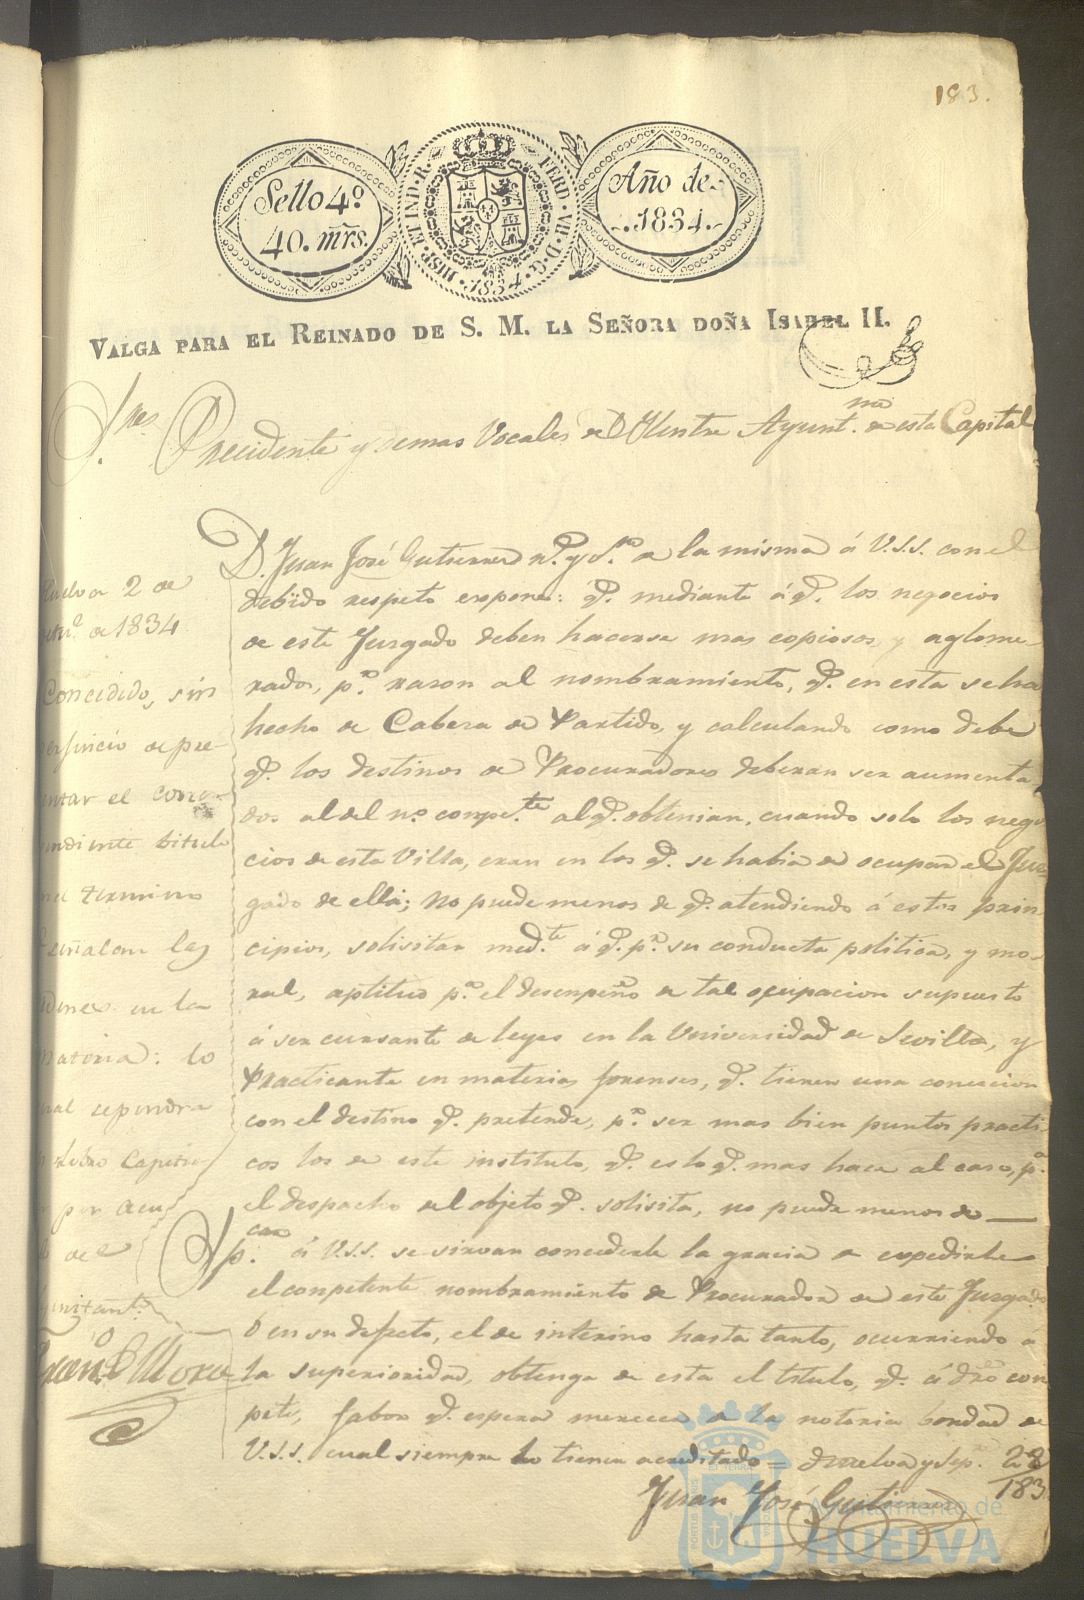 183.
Sello 4º
40. mrs.
HISP. ET IND. R. FERD. VII. D. G. 1834
Año de
1834.
VALGA PARA EL REINADO DE S. M. LA SEÑORA DOÑA ISABEL II.
Sres Precidente y demas Vocales del Ylustre Ayuntmto de esta Capital
Huelva 2 de
Octue de 1834
Concedido, sin
perjuicio de pre-
sentar el corres-
pondiente titulo
en el termino
qe señalan las
ordenes en la
materia: lo
cual se pondra
en Cavildo Capitular
por acu
do de
Ayuntamto
Franco de Mora
D. Juan José Gutierrez nl. y vº. de la misma á V.S.S. con el
debido respeto expone: qe. mediante á qe. los negocios
de este Jurgado deben hacerse mas copiosos, y aglome-
rados, pr. rason al nombramiento, qe. en esta se ha
hecho de Cabeza de Partido, y calculando como debe
qe. los destinos de Procuradores deberan ser aumenta-
dos al del nº. conpete. al qe. obtenian, cuando solo los nego-
cios de esta Villa, eran en los qe. se habia de ocupar el Jur-
gado de ella; no puede menos de qe. atendiendo á estos prin-
cipios, solisitar medte. á qe. pr. su conducta politica, y mo-
ral, aptitud pa. el desenpeño de tal ocupacion supuesto
á ser cursante de leyes en la Universidad de Sevilla, y
Practicante en materias forenses, qe. tienen una coneccion
con el destino qe. pretende, pr. ser mas bien puntos practi-
cos los de este instituto, qe. es lo qe. mas hace al caso, pa.
el despacho del objeto qe. solisita, no puede menos de
Supcar á V.S.S. se sirvan concederle la gracia de expedirle
el conpetente nombramiento de Procurador de este Jurgado
ó en su defecto, el de interino hasta tanto, ocurriendo a
la superioridad, obtenga de esta el titulo, qe. á dro con
pete, fabor qe. espera merecer de la notoria bondad de
V.S.S. cual siempre lo tienen acreditado = Huelva y Sep. 28
183
Juan José Gutierrez
Ayuntamiento de
HUELVA